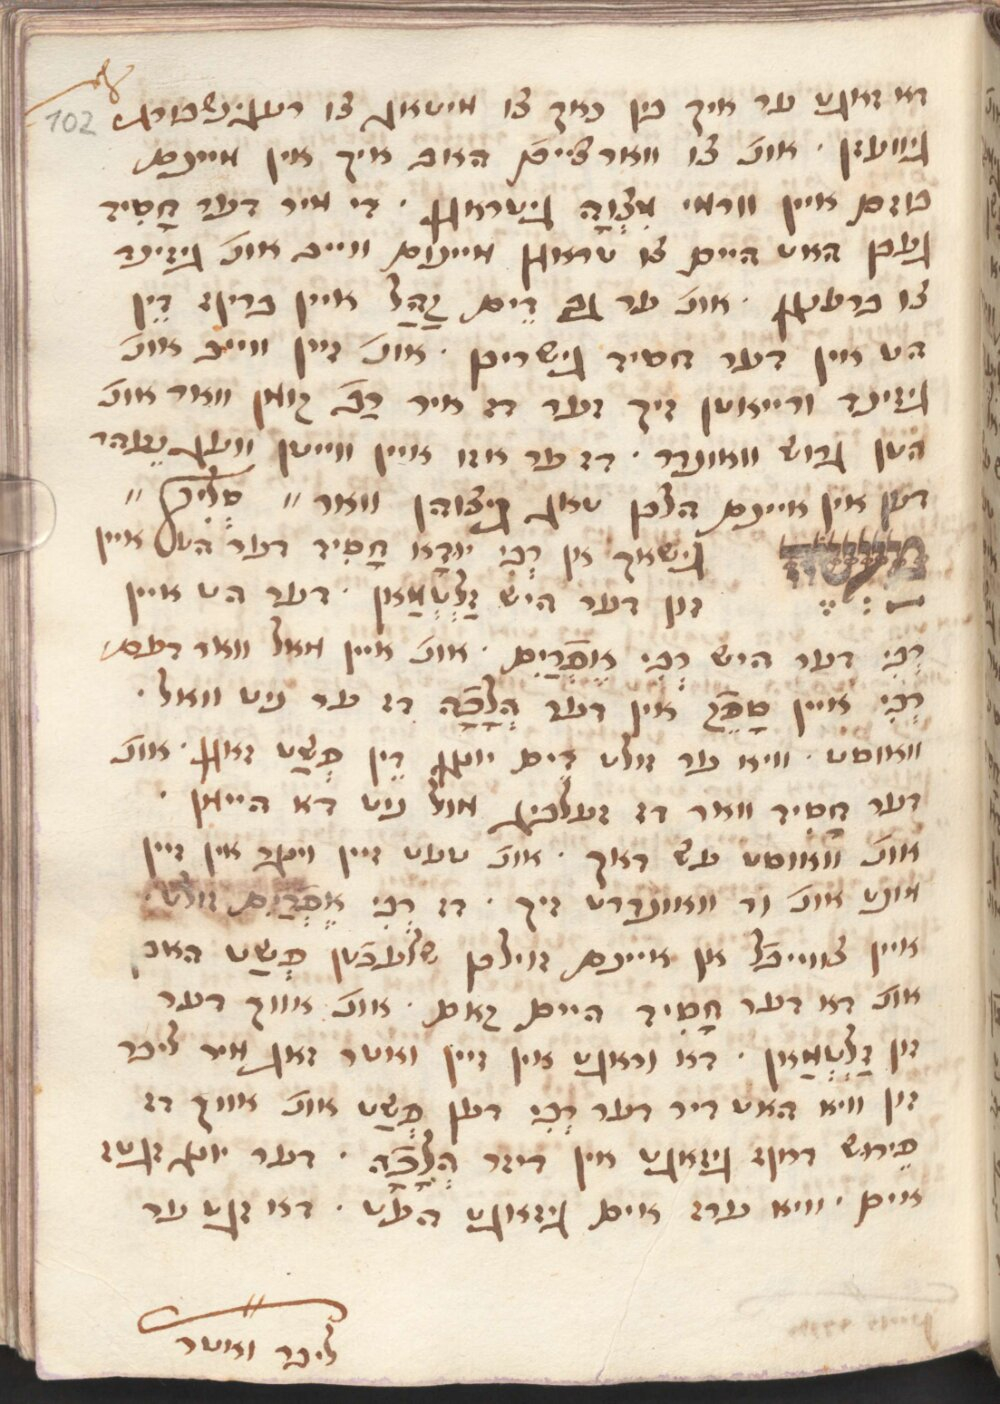 102
דא זאגט ער איך בין נאך צו מיטאג צו רעגנשבורג
גיוועזן · אונ' צו ווארצייט האב איך אין איינם
כוזם איין ורומי מִצְוָה גיטראגן · די מיר דער חָסִיד
געבן האט היים צו טראגן מיינם ווייב אונ' גיזינד
צו ברענגן · אונ' ער גב דֵים קָהָל איין ברִיף דֵין
הט אין דער חסיד גישריבן · אונ' זיין ווייב אונ'
גיזינד ורייאטן זיך זער דז איר רַב קומן וואר אונ'
הטן גרוש וואונדר · דז ער אזו איין ווייטן וועג
דען אין איינם הלבן טאג גיצוהן וואר ״ סְלִיק ״
מעשה גישאך אן רְבִּי יוּדָא חָסִיד דער הט איין
זון דער היש זַלְטְמַאן · דער הט איין
רְבִּי דער היש רְבִּי אֶפְרַיִם · אונ' איין מאל וואר דעם
רְבִּי איין סָפֵק אין דער הְלָכָה דז ער ניט וואל ·
וואוסט · וויא ער זולט דֵים יונגן דֵין פְּשַט זאגן · אונ'
דער חָסִיד וואר דז זעלביג מול ניט דא היימן ·
אונ' וואוסט עש דאך · אונ' טעט זיין ויגר אין זיין
מונט אונ' ור וואונדרט זיך · דז רְבִּי אֶפְרַיִם זולט ·
איין צווייבל אן איינם זוילכן שלעכטן פְּשַט האבן
אונ' דא דער חָסִיד היים קאם · אונ' אוך דער
זון זַלְטְמַאן · דא וראגט אין זיין ואטר זאג מיר ליבר
זון וויא האט דיר דער רְבִּי דען פְּשַט אונ' אוך דז
פֵירוש דאנז גיזאגט אין דיזר הְלָכָה · דער יונג זגטז
אים · וויא ערז אים גיזאגט העט · דא זגט ער
ליבר ואטר